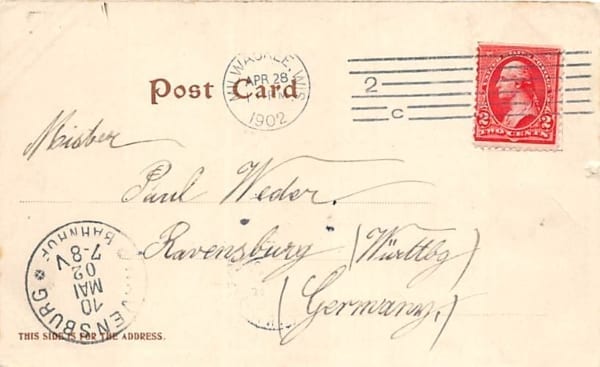 Post Card
MILWAUKEE, WIS.
APR 28
1902
2
C
2 TWO CENTS 2
Misber
Paul Weder.
Ravensburg (Württbg)
(Germany.)
RAVENSBURG
BAHNHOF
10 MAI 02
7-8 V
THIS SIDE IS FOR THE ADDRESS.